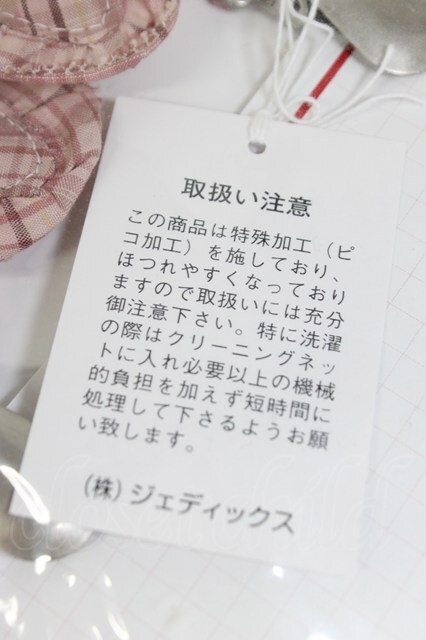 取扱い注意
この商品は特殊加工（ピ
コ加工）を施しており、
ほつれやすくなっており
ますので取扱いには充分
御注意下さい。特に洗濯
の際はクリーニングネッ
トに入れ必要以上の機械
的負担を加えず短時間に
処理して下さるようお願
い致します。
(株)ジェディックス